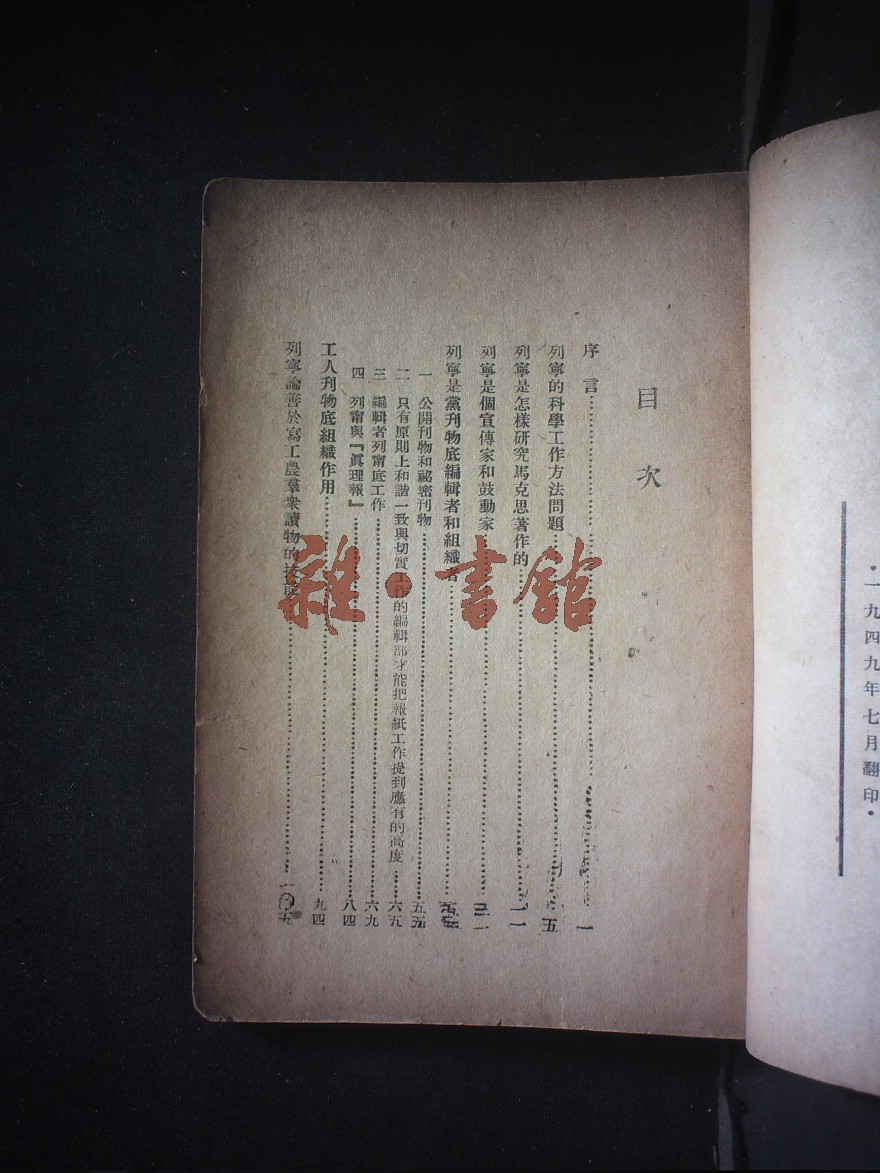 •一九四九年七月翻印•
目次
序言……一
列寧的科學工作方法問題……五
列寧是怎樣研究馬克思著作的……一一
列寧是個宣傳家和鼓動家……三一
列寧是黨刊物底編輯者和組織者……
一 公開刊物和祕密刊物……五五
二 只有原則上和諧一致與切實工作的編輯部才能把報紙工作提到應有的高度……六五
三 編輯者列甯底工作……六九
四 列甯與『眞理報』……八四
工人刋物底組織作用……九四
列寧論善於寫工農羣衆讀物的技能……一〇五
雜·書館